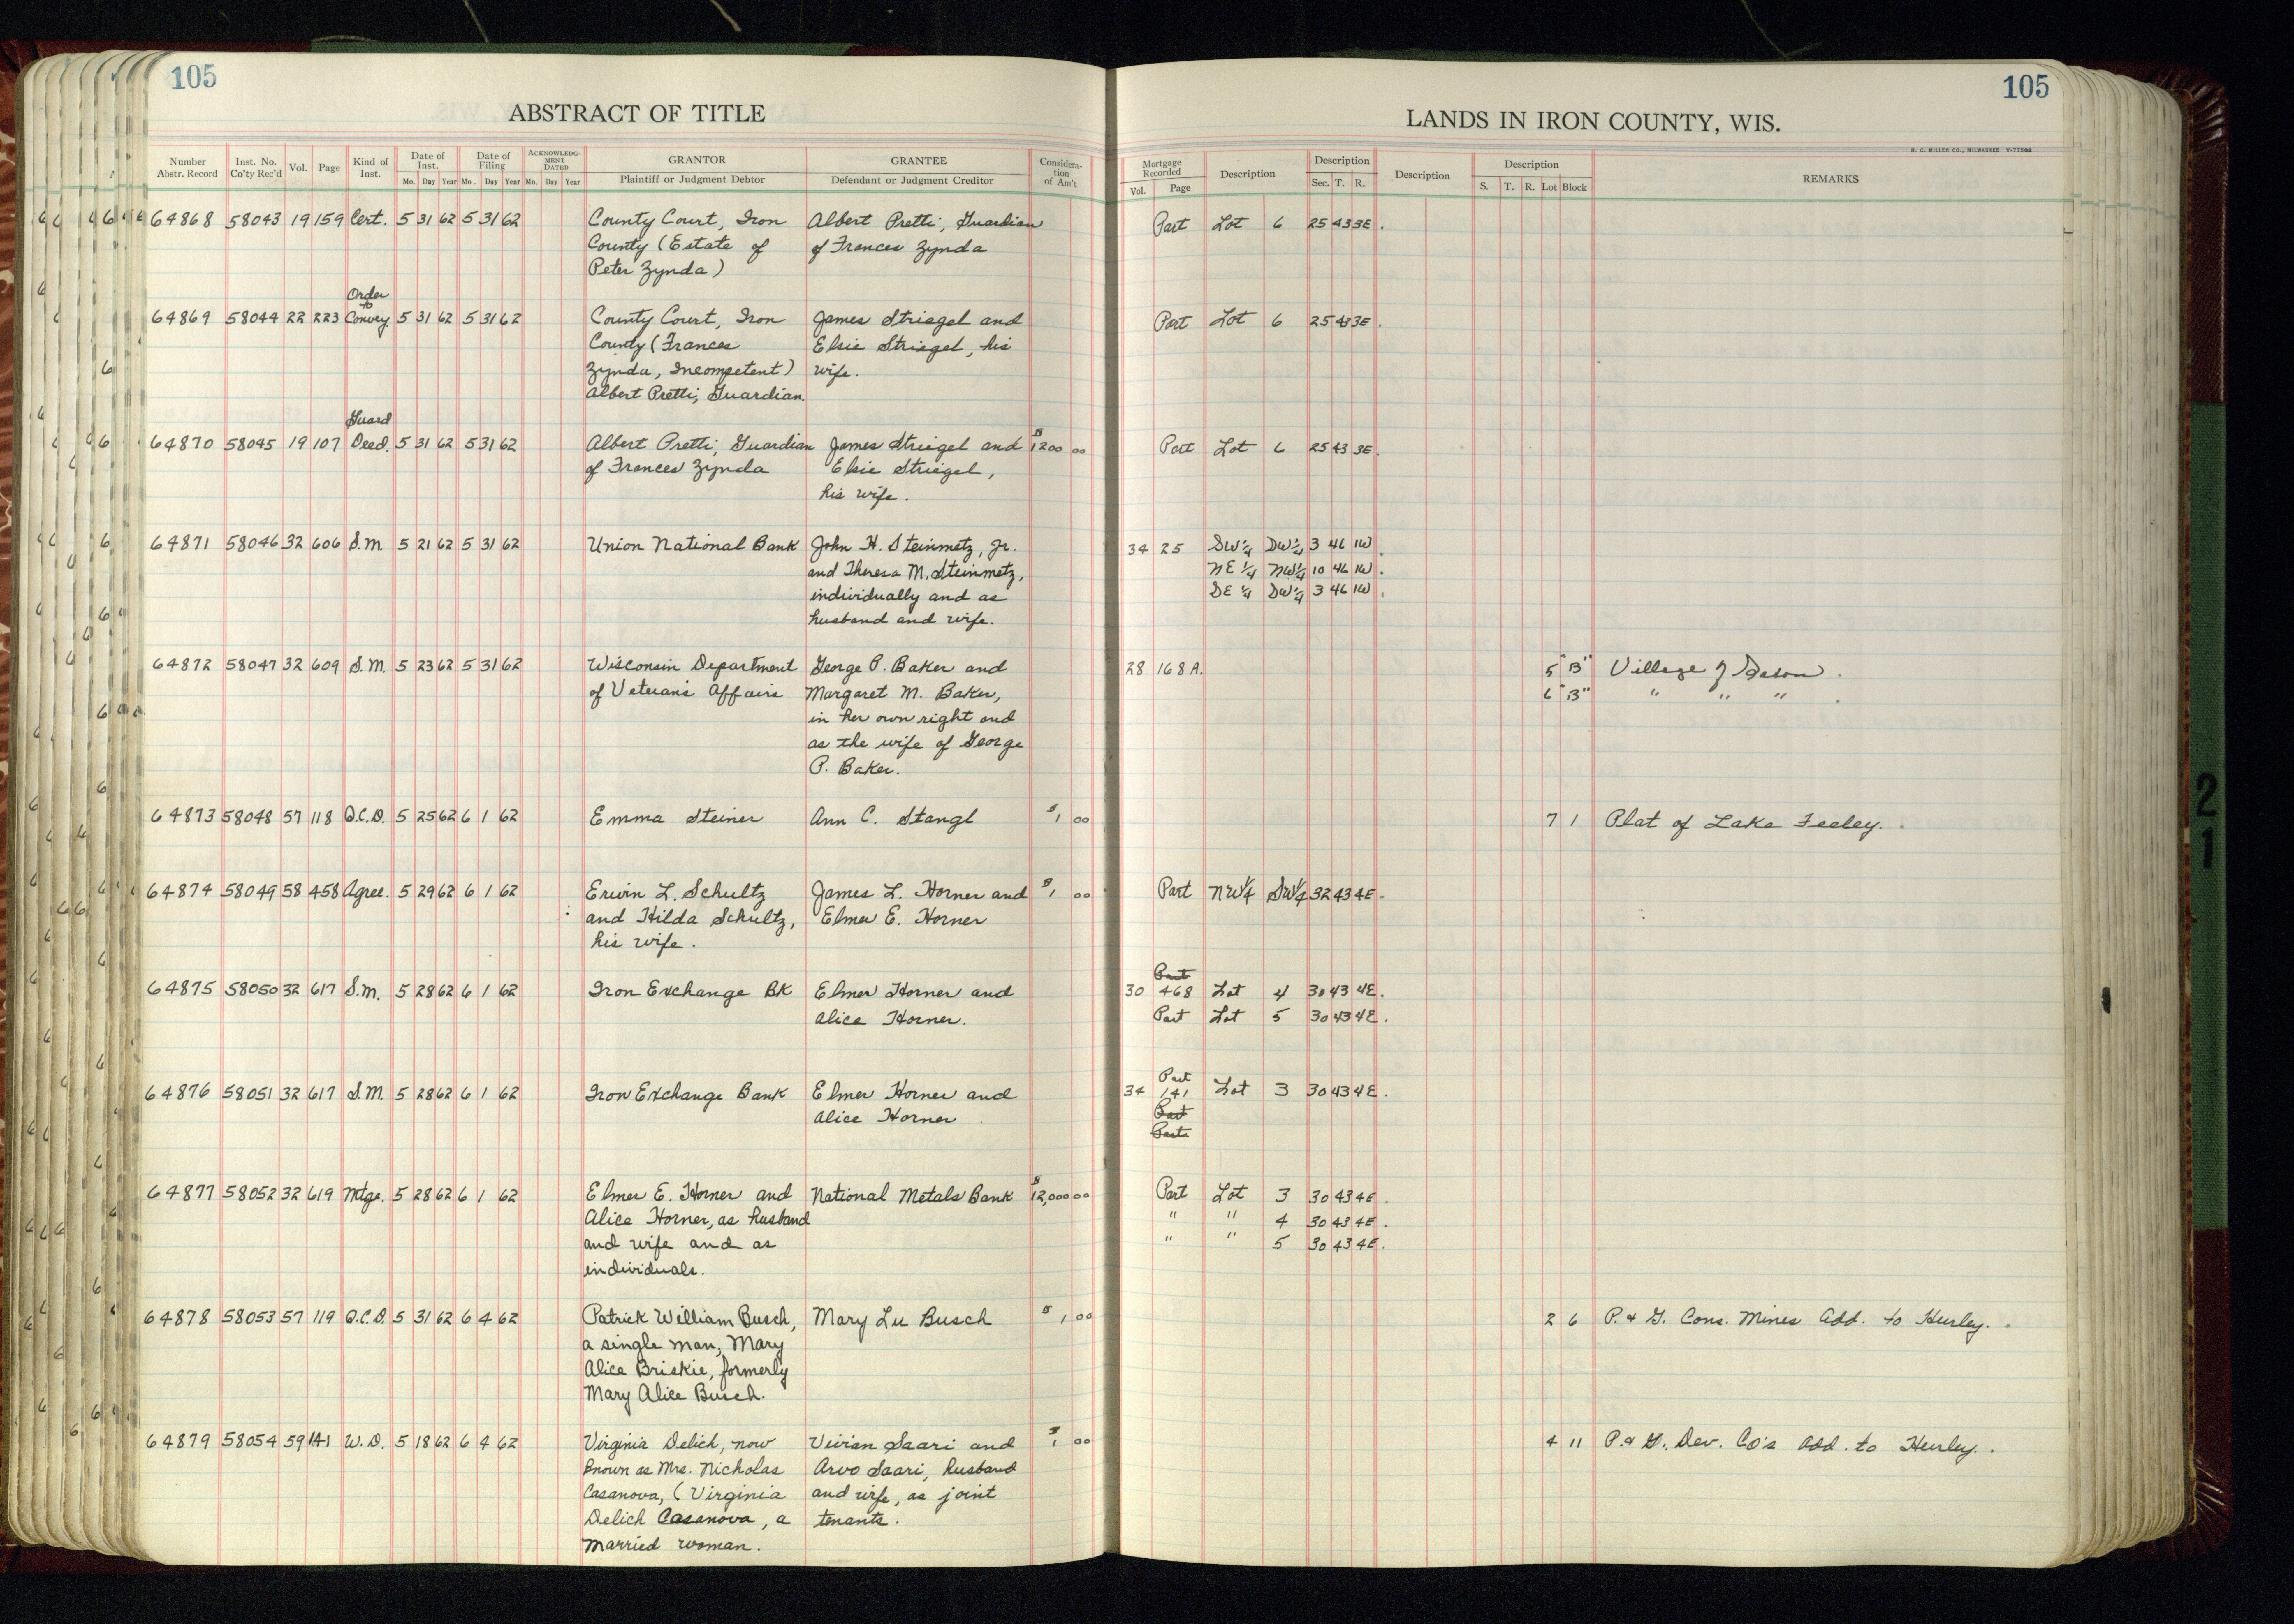 105
105
ABSTRACT OF TITLE
LANDS IN IRON COUNTY, WIS.
H. C. MILLER CO., MILWAUKEE
Number Abstr. Record Inst. No. Co'ty Rec'd Vol. Page Kind of Inst. Date of Inst. Mo. Day Year Date of Filing Mo. Day Year ACKNOWLEDGMENT DATED Mo. Day Year GRANTOR Plaintiff or Judgment Debtor GRANTEE Defendant or Judgment Creditor Consideration of Am't Mortgage Recorded Vol. Page Description Description Sec. T. R. Description Description S. T. R. Lot Block REMARKS
64868 58043 19 159 Cert. 5 31 62 5 31 62 County Court, Iron Albert Pretti, Guardian Part Lot 6 25 43 3E.
County (Estate of of Frances Zynda
Peter Zynda)
Order to
64869 58044 22 223 Convey 5 31 62 5 31 62 County Court, Iron James Striegel and Part Lot 6 25 43 3E.
County (Frances Elsie Striegel, his
Zynda, Incompetent) wife.
Albert Pretti, Guardian.
Guard
64870 58045 19 107 Deed. 5 31 62 5 31 62 Albert Pretti, Guardian James Striegel and $1200 00 Part Lot 6 25 43 3E.
of Frances Zynda Elsie Striegel,
his wife.
64871 58046 32 606 S.M. 5 21 62 5 31 62 Union National Bank John H. Steinmetz, Jr. 34 25 SW¼ SW¼ 3 46 1W.
and Theresa M. Steinmetz, NE¼ NW¼ 10 46 1W.
individually and as SE¼ SW¼ 3 46 1W.
husband and wife.
64872 58047 32 609 S.M. 5 23 62 5 31 62 Wisconsin Department George P. Baker and 28 168A. 5 "B" Village of Saxon.
of Veterans Affairs Margaret M. Baker, 6 "B" " " " .
in her own right and
as the wife of George
P. Baker.
64873 58048 57 118 Q.C.D. 5 25 62 6 1 62 Emma Steiner Ann C. Stangl $1 00 7 1 Plat of Lake Feeley.
64874 58049 58 458 Agree. 5 29 62 6 1 62 Erwin L. Schultz James L. Horner and $1 00 Part NW¼ SW¼ 32 43 4E.
and Hilda Schultz, Elmer E. Horner
his wife.
Part
64875 58050 32 617 S.M. 5 28 62 6 1 62 Iron Exchange BK Elmer Horner and 30 468 Lot 4 30 43 4E.
Alice Horner. Part Lot 5 30 43 4E.
Part
64876 58051 32 617 S.M. 5 28 62 6 1 62 Iron Exchange Bank Elmer Horner and 34 141 Lot 3 30 43 4E.
Alice Horner Part
Part
64877 58052 32 619 Mtge. 5 28 62 6 1 62 Elmer E. Horner and National Metals Bank $12,000 00 Part Lot 3 30 43 4E.
Alice Horner, as husband " " 4 30 43 4E.
and wife and as " " 5 30 43 4E.
individuals.
64878 58053 57 119 Q.C.D. 5 31 62 6 4 62 Patrick William Busch, Mary Lu Busch $1 00 2 6 P. & G. Cons. Mines Add. to Hurley.
a single man; Mary
Alice Briskie, formerly
Mary Alice Busch.
64879 58054 59 141 W.D. 5 18 62 6 4 62 Virginia Delich, now Vivian Saari and $1 00 4 11 P. & G. Dev. Co's Add. to Hurley.
known as Mrs. Nicholas Arvo Saari, husband
Casanova, (Virginia and wife, as joint
Delich Casanova, a tenants.
married woman.
21